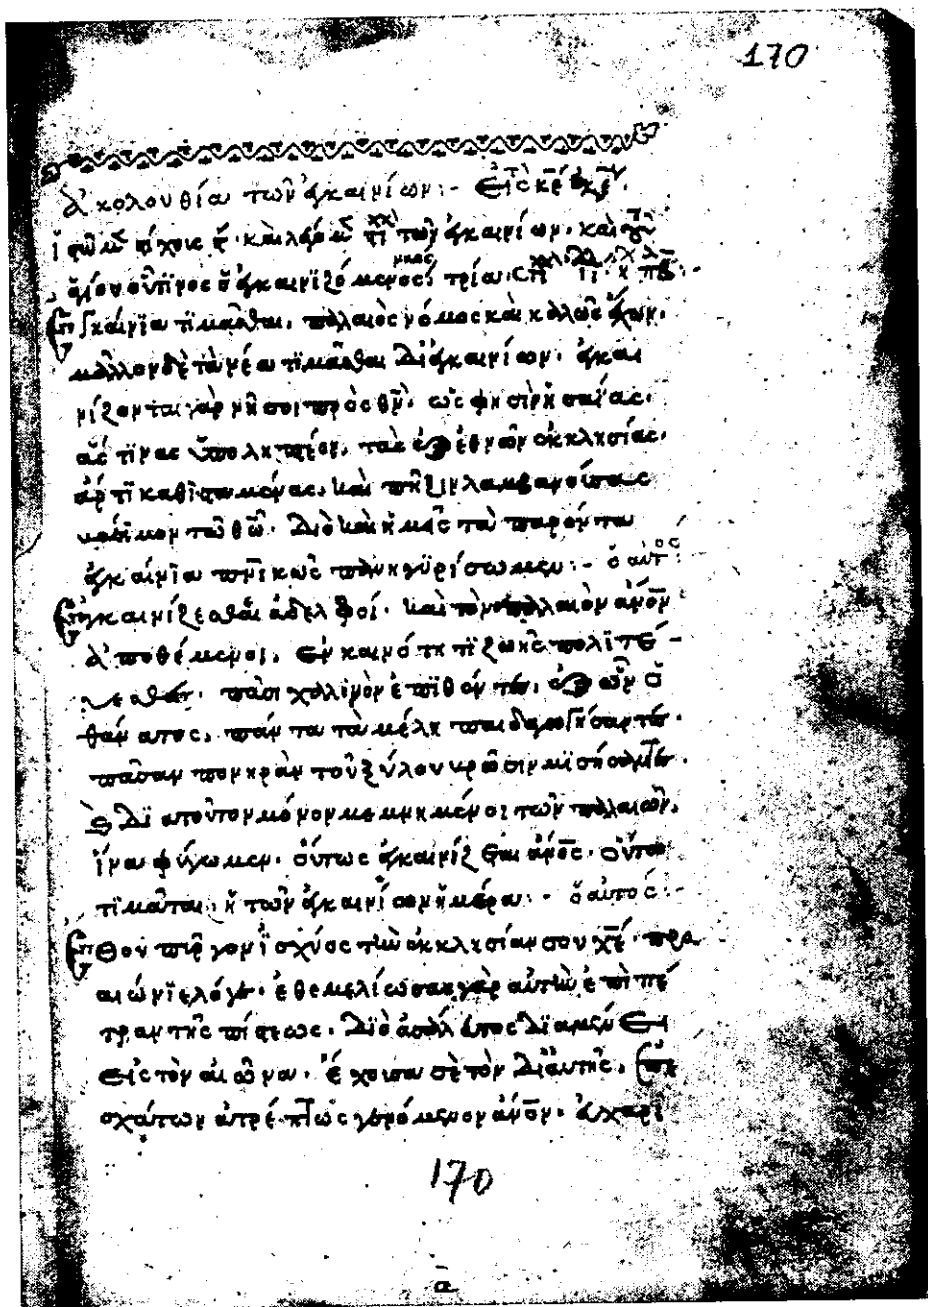 170
ἀκολουθία τῶν ἐγκαινίων :- Εἰς κε εκκρ
ἱστῶμεν στίχοις καὶ ψάλλομεν τῶν ἐγκαινίων · καὶ
ἁγίου οὗτινος ὁ ἐγκαινιζόμενος ναός, τρία ·
Ἐγκαίνια τιμᾶσθαι, παλαιὸς νόμος καὶ καλῶς ἔχων,
μᾶλλον δὲ τὰ νέα τιμᾶσθαι δι ἐγκαινίων · ἐγκαι
νίζονται γὰρ νῆσοι πρὸς θν̅ · ὥς φησιν ἡσαΐας ·
ἅς τινας ὑποληπτέον, τὰς ἐξ ἐθνῶν ἐκκλησίας,
ἄρτι καθισταμένας, καὶ πῆξιν λαμβανούσας
βάσιμον τῶ θω̅ · Διὸ καὶ ἡμεῖς τὰ παρόντα
ἐγκαίνια πνι̅κῶς πανηγυρίσωμεν :- ὁ αὐτος
Ἐγκαινίζεσθαι ἀδελφοί · καὶ τὸν παλαιὸν ἀνο̅ν
ἀποθέμενοι, ἐν καινότητι ζωῆς πολιτέ-
υεσθαι · πᾶσι χαλινὸν ἐπιθέντες, ἐξ ὧν ὁ
θάνατος, πάντα τὰ μέλη παιδαγωγήσαντες ·
πᾶσαν πονηρὰν τοῦ ξύλου βρῶσιν μισήσαντες ·
καὶ διὰ τοῦτο μόνον μεμνημένοι τῶν παλαιῶν,
ἵνα φύγωμεν · οὕτως ἐγκαινίζεται ἀνο̅ς · οὕτω
τιμᾶται ἡ τῶν ἐγκαινίων ἡμέρα :- ὁ αὐτός :-
Ἔθου πύργον ἰσχύος τὴν ἐκκλησίαν σου χε̅ · προ
αιώνιε λόγε · ἐθεμελίωσας γὰρ αὐτὴν ἐπὶ πέ
τραν τῆς πίστεως · Διὸ ἀσάλευτος διαμένει
εἰς τὸν αἰῶνα · ἔχουσα σὲ τὸν δι αὐτῆς, ἐπ ἐ
σχάτων ἀτρέπτως γενόμενον ἀνο̅ν · εὐχαρι
170